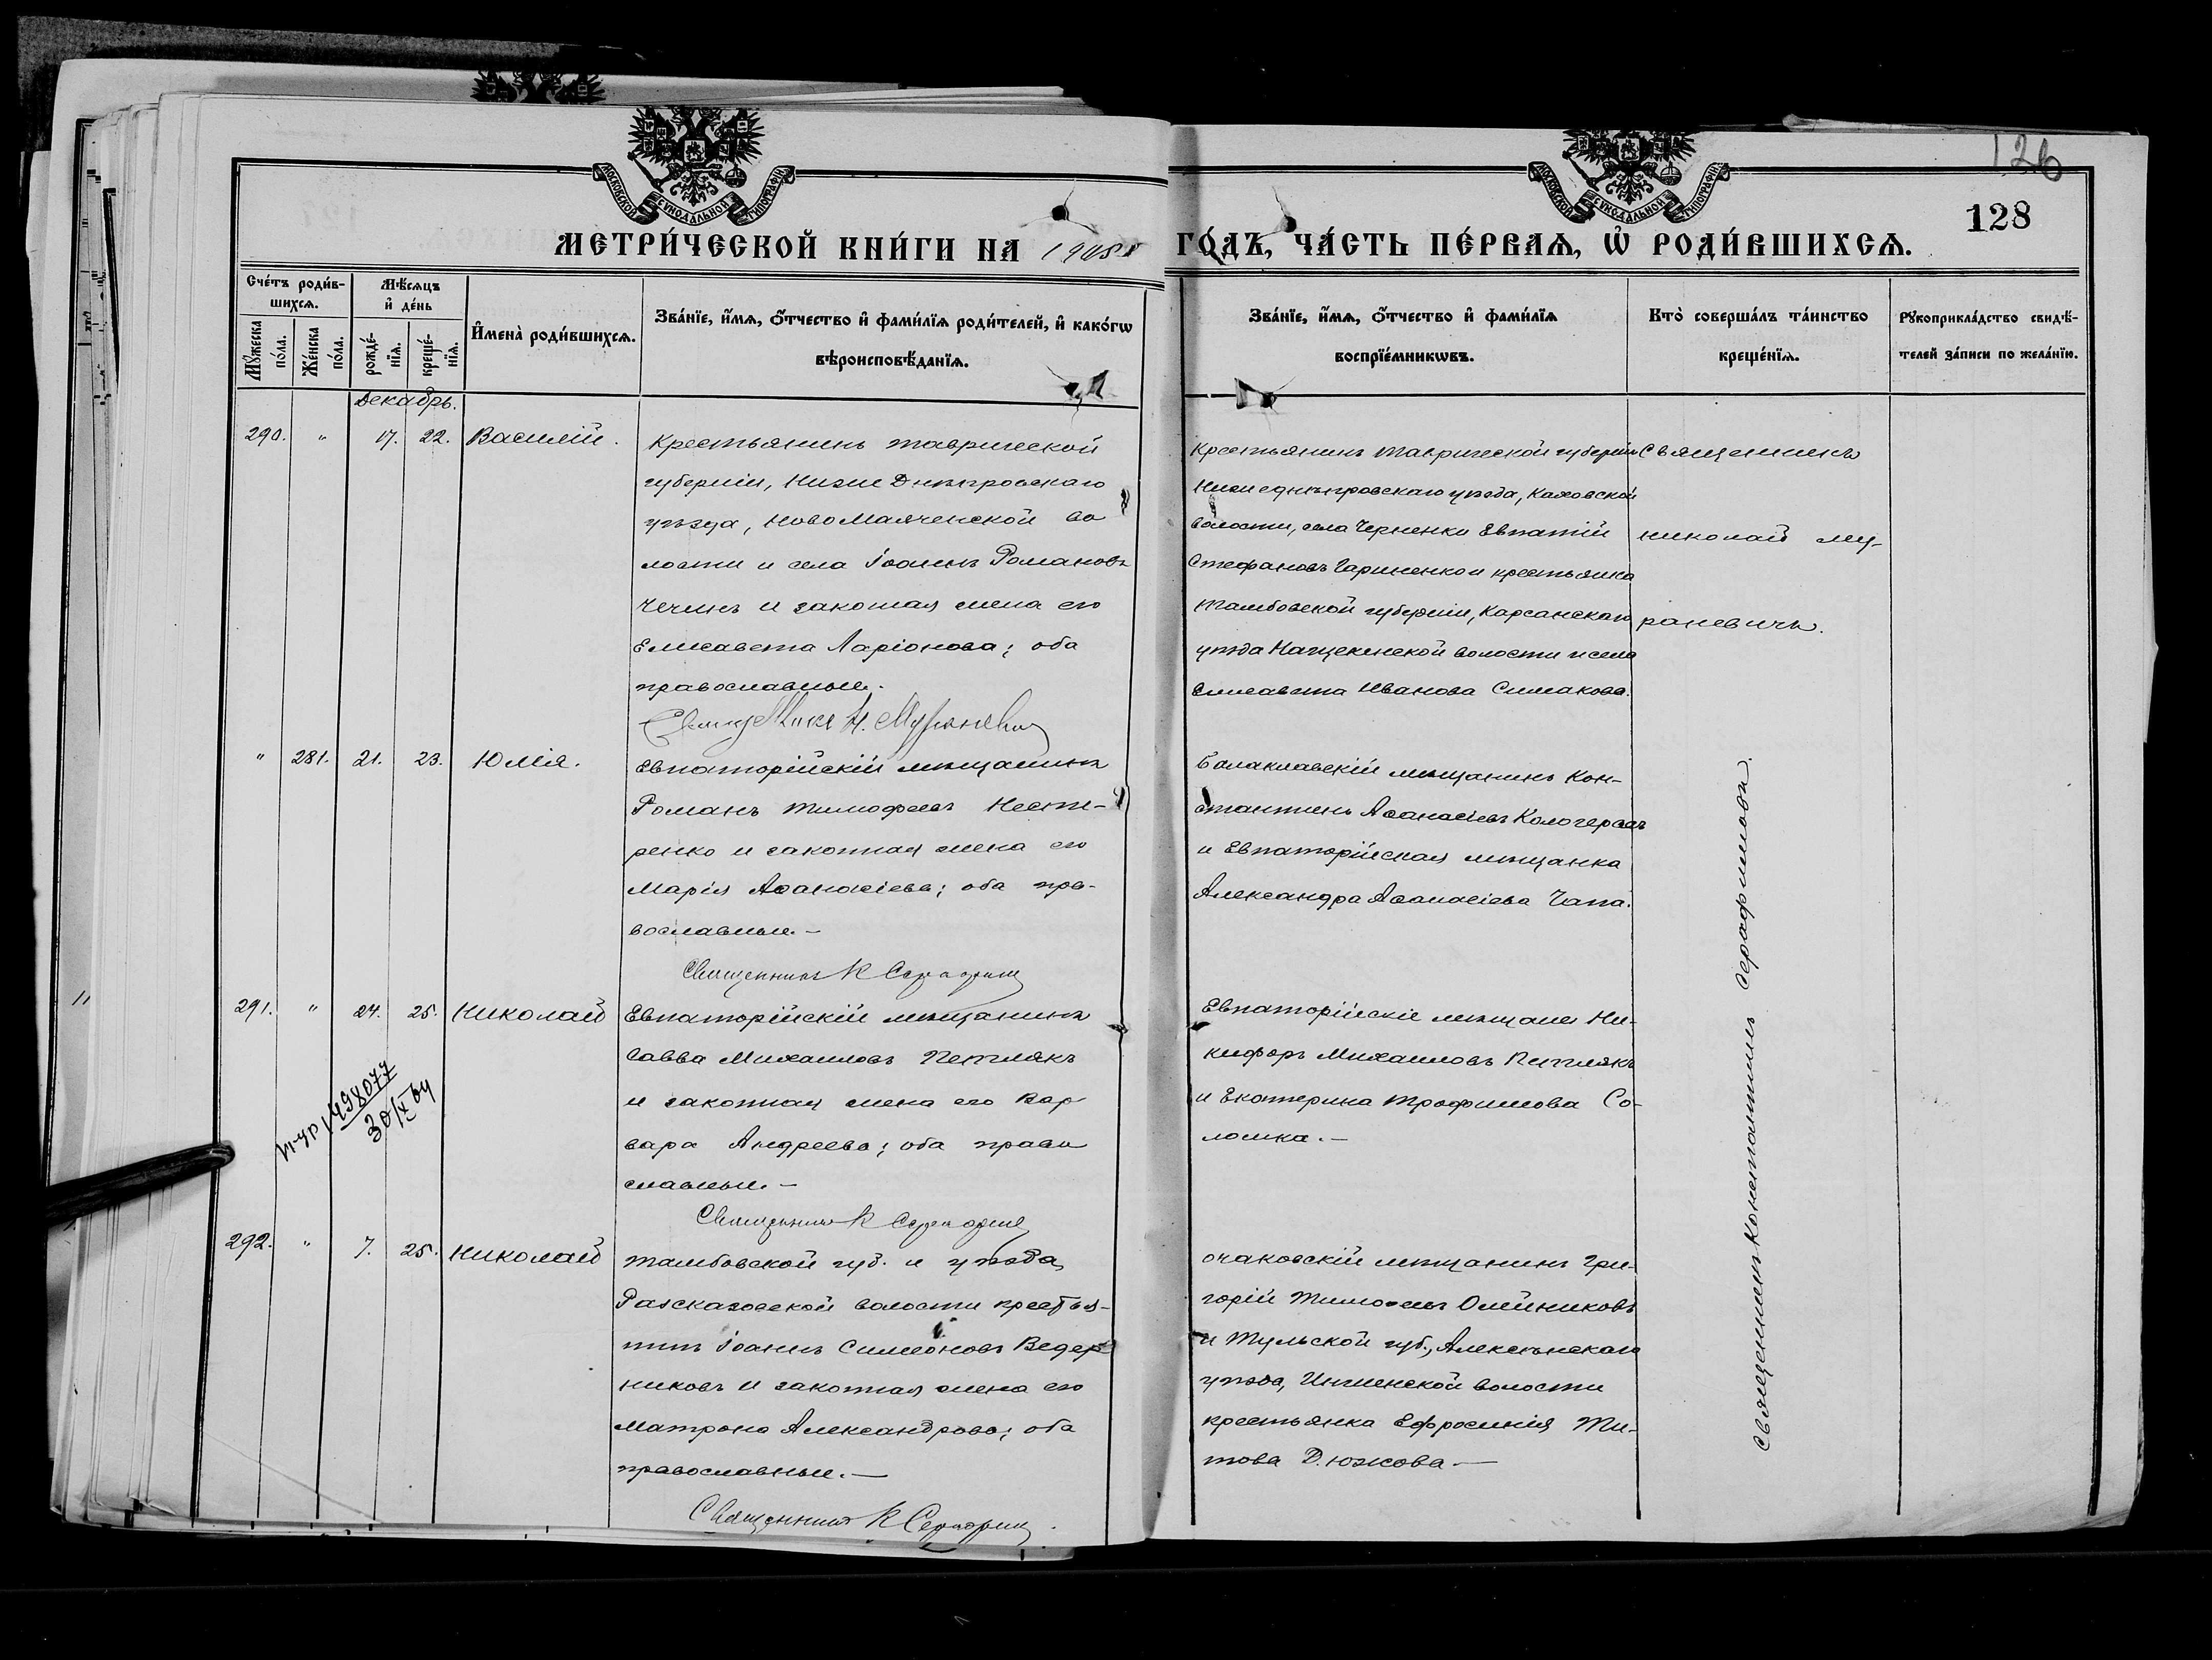 126
128
МОСКОВСКОЙ СѴНОДАЛЬНОЙ ТИПОГРАФІИ
МОСКОВСКОЙ СѴНОДАЛЬНОЙ ТИПОГРАФІИ
МЕТРИ́ЧЕСКОЙ КНИ́ГИ НА 1905 ГО́ДЪ, ЧА́СТЬ ПЕ́РВАѦ, Ѽ РОДИ́ВШИХСѦ.
Сче́тъ роди́в-
шихсѧ.
Мѹ́жеска по́ла.
Же́нска по́ла.
Мѣ́сѧцъ
и҆ де́нь
рожде́-
нїѧ.
креще́-
нїѧ.
И҆мена̀ роди́вшихсѧ.
Зва́нїе, и҆́мѧ, о҆́тчество и҆ фами́лїѧ роди́телей, и҆ како́гѡ
вѣроисповѣ́данїѧ.
Зва́нїе, и҆́мѧ, о҆́тчество и҆ фами́лїѧ
воспрїе́мникѡвъ.
Кто̀ соверша́лъ та́инство
креще́нїѧ.
Рѹкоприкла́дство свидѣ́-
телей за́писи по жела́нїю.
Декабрь.
290. " 17. 22. Василій.
Крестьянинъ Таврической
губерніи, Ниже Днѣпровскаго
уѣзда, Ново Маяченской во
лости и села Іоаннъ Романовъ
Чечинъ и законная жена его
Елисавета Ларіонова; оба
православные.
Крестьянинъ Таврической губерніи
Нижеднѣпровскаго уѣзда, Каховской
волости, села Черненки Евпатій
Стефановъ Гариненко и крестьянка
Тамбовской губерніи, Карсанскаго
уѣзда Нащекинской волости и села
Елисавета Иванова Симакова.
Священникъ
Николай Му-
раневичъ.
" 281. 21. 23. Юлія.
Евпаторійскій мѣщанинъ
Романъ Тимофеевъ Несте-
ренко и законная жена его
Марія Аѳанасіева; оба пра-
вославные. —
Священникъ К Серафим
Балаклавскій мѣщанинъ Кон-
стантинъ Аѳанасіевъ Кологерасъ
и Евпаторійская мѣщанка
Александра Аѳанасіева Чапа.
291. " 24. 25. Николай
Евпаторійскій мѣщанинъ
Савва Михаиловъ Петлякъ
и законная жена его Вар
вара Андреева; оба право
славные. —
Священникъ К Серафим
Евпаторійскіе мѣщане Ни-
кифоръ Михаиловъ Петлякъ
и Екатерина Трофимова Со-
ломка. —
498077
30/X 64
292. " 7. 25. Николай
Тамбовской губ. и уѣзда,
Разсказовской волости крестья-
нинъ Іоаннъ Симеоновъ Ведер
никовъ и законная жена его
Матрона Александрова; оба
православные. —
Священникъ К Серафим
Очаковскій мѣщанинъ Гри-
горій Тимоѳеевъ Олейниковъ
и Тульской губ., Алексинскаго
уѣзда, волости
крестьянка Ефросинія Ти-
това Дюжова —
Священникъ Константинъ Серафимовъ.